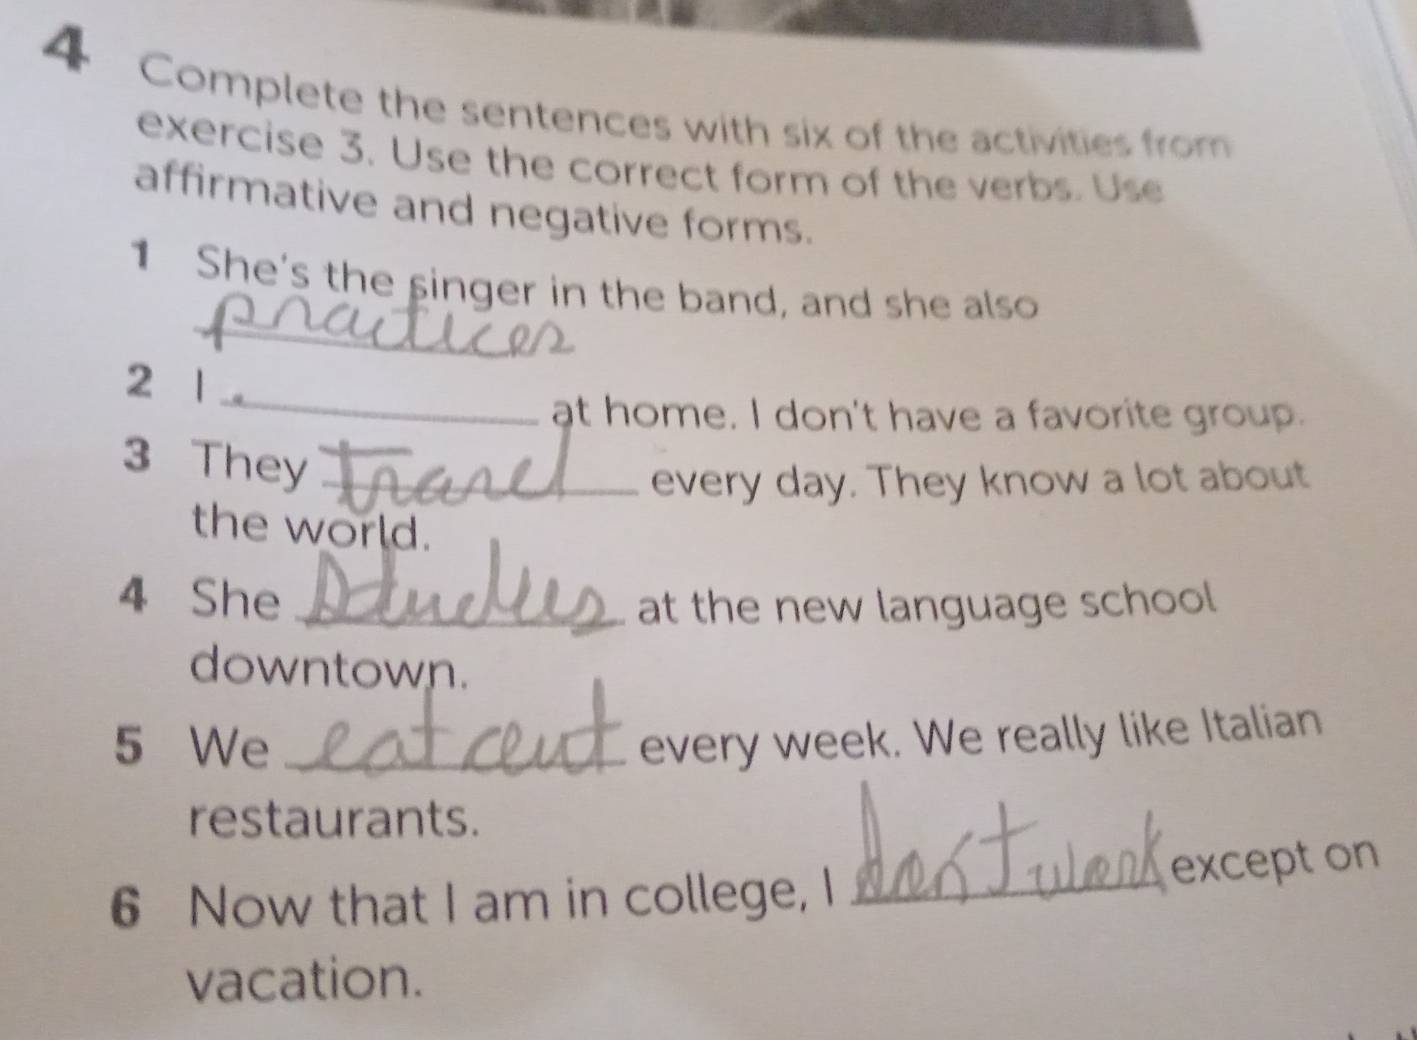 4 Complete the sentences with six of the activities from
exercise 3. Use the correct form of the verbs. Use
affirmative and negative forms.
1 She's the singer in the band, and she also
practices
2 I
at home. I don't have a favorite group.
3 They travel every day. They know a lot about
the world.
4 She studies at the new language school
downtown.
5 We eat out every week. We really like Italian
restaurants.
6 Now that I am in college, I don't work except on
vacation.